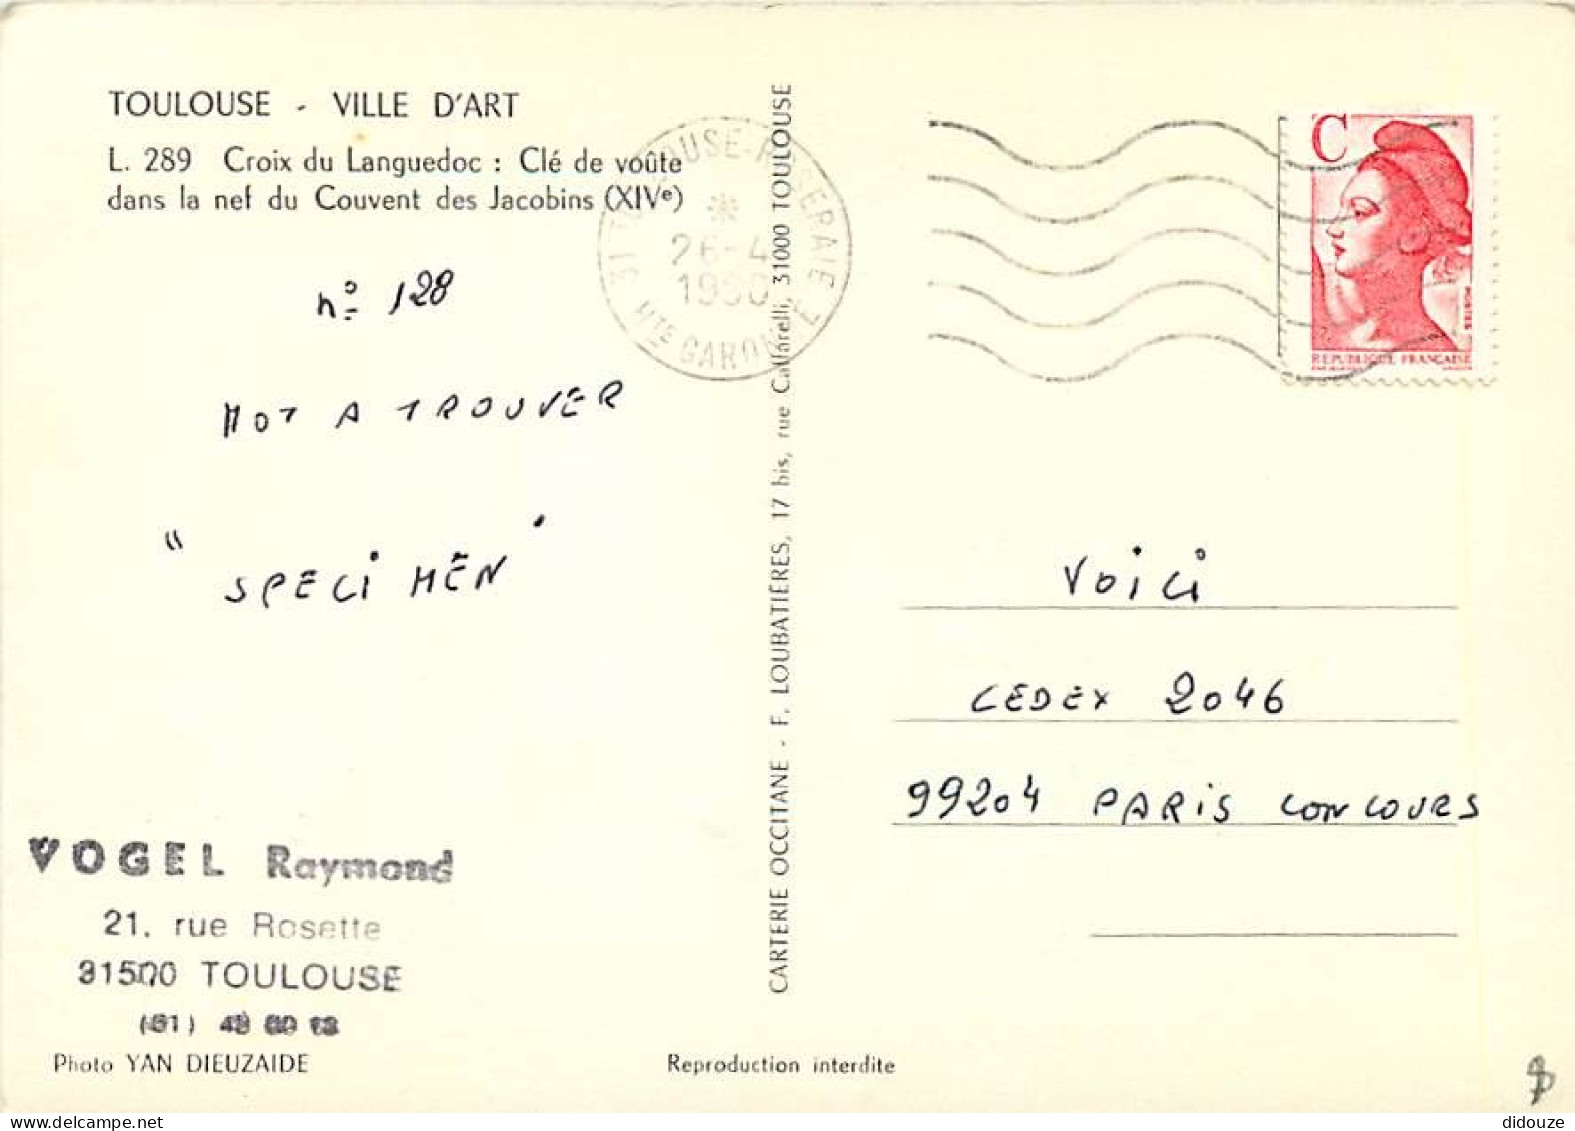 TOULOUSE - VILLE D'ART
L. 289 Croix du Languedoc : Clé de voûte
dans la nef du Couvent des Jacobins (XIVe)
n° 128
MOT A TROUVER
" SPECIMEN "
VOGEL Raymond
21. rue Rosette
31500 TOULOUSE
(61)
Photo YAN DIEUZAIDE
Reproduction interdite
CARTERIE OCCITANE - F. LOUBATIÈRES, 17 bis, rue Caffarelli, 31000 TOULOUSE
31 TOULOUSE-ROSERAIE
26-4
1990
HTE GARONNE
C
POSTES
REPUBLIQUE FRANÇAISE
VOICI
CEDEX 2046
99204 PARIS CONCOURS
didouze